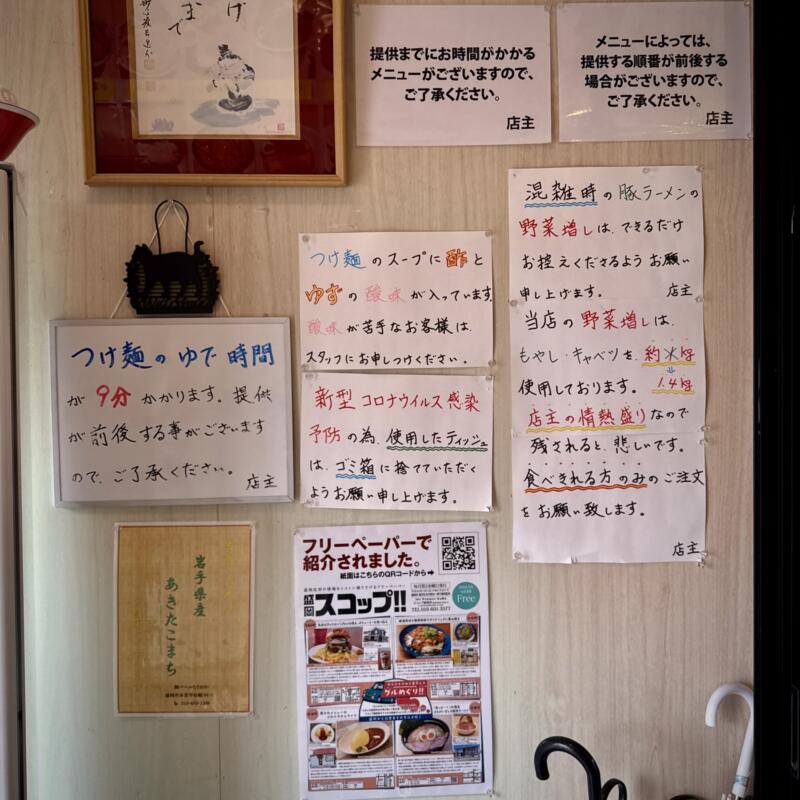 げ
まで
提供までにお時間がかかる
メニューがございますので、
ご了承ください。
店主
メニューによっては、
提供する順番が前後する
場合がございますので、
ご了承ください。
店主
混雑時の豚ラーメンの
野菜増しは、できるだけ
お控えくださるようお願い
申し上げます。 店主
当店の野菜増しは、
もやし・キャベツを、約 kg
1.4kg
使用しております。
店主の情熱盛りなので
残されると、悲しいです。
食べきれる方のみのご注文
をお願い致します。
店主
つけ麺のスープに酢と
ゆずの酸味が入っています。
酸味が苦手なお客様は、
スタッフにお申しつけください。
新型コロナウイルス感染
予防の為、使用したティッシュ
は、ゴミ箱に捨てていただく
ようお願い申し上げます。
つけ麺のゆで時間
が9分かかります。提供
が前後する事がございます
ので、ご了承ください。 店主
岩手県産
あきたこまち
フリーペーパーで
紹介されました。
紙面はこちらのQRコードから➡
盛岡スコップ!!
Free
グルめぐり!!